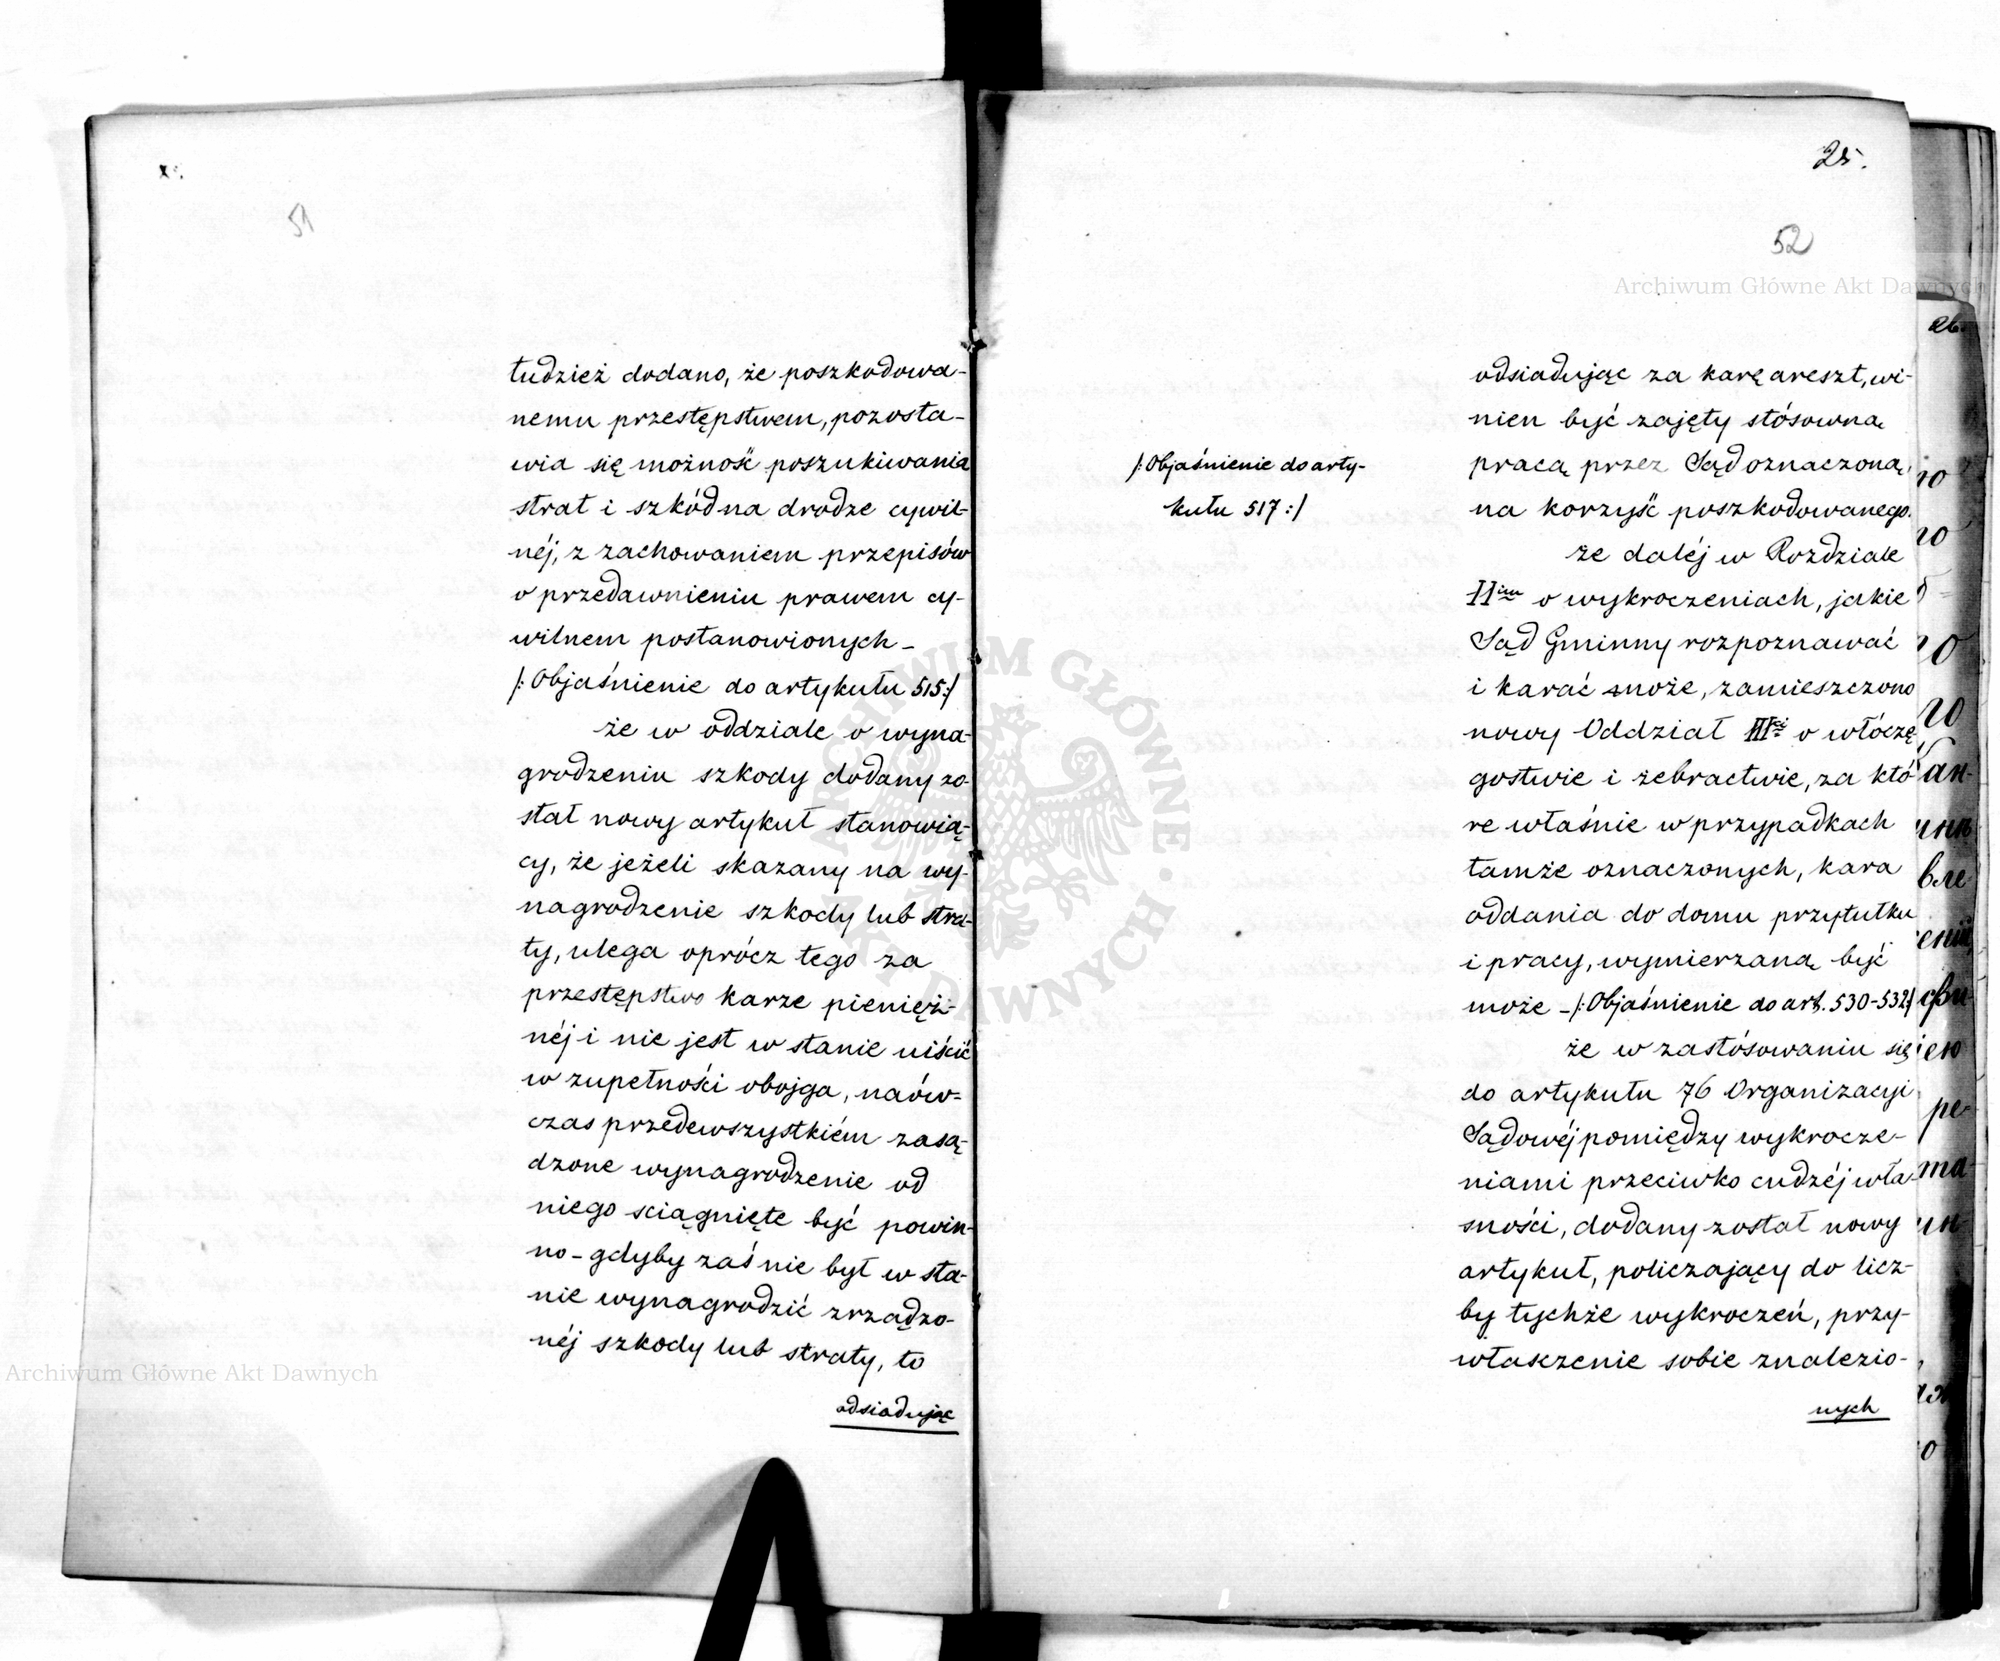 51
tudzież dodano, że poszkodowa-
nemu przestępstwem, pozosta-
wia się możność poszukiwania
strat i szkód na drodze cywil-
néj, z zachowaniem przepisów
o przedawnieniu prawem cy-
wilnem postanowionych –
/: Objaśnienie do artykułu 515 :/
że w oddziale o wyna-
grodzeniu szkody dodany zo-
stał nowy artykuł stanowią-
cy, że jeżeli skazany na wy-
nagrodzenie szkody lub stra-
ty, ulega oprócz tego za
przestępstwo karze pienięż-
néj i nie jest w stanie uiścić
w zupełności obojga, naów-
czas przedewszystkiém zasą-
dzone wynagrodzenie od
niego ściągnięte być powin-
no – gdyby zaś nie był w sta-
nie wynagrodzić zrządzo-
néj szkody lub straty, to
odsiadując
25.
52
odsiadując za karę areszt, wi-
nien być zajęty stósowną
pracą przez Sąd oznaczoną,
na korzyść poszkodowanego.
/: Objaśnienie do arty-
kułu 517 :/
że daléj w Rozdziale
IIim o wykroczeniach, jakie
Sąd Gminny rozpoznawać
i karać może, zamieszczono
nowy Oddział IIIci o włóczę
gostwie i żebractwie, za któ-
re właśnie w przypadkach
tamże oznaczonych, kara
oddania do domu przytułku
i pracy, wymierzaną być
może – /: Objaśnienie do art. 530-532 :/
że w zastósowaniu się
do artykułu 76 Organizacyi
Sądowéj pomiędzy wykrocze-
niami przeciwko cudzéj wła-
sności, dodany został nowy
artykuł, policzający do licz-
by tychże wykroczeń, przy-
właszczenie sobie znalezio-
nych
Archiwum Główne Akt Dawnych
Archiwum Główne Akt Dawnych
ARCHIWUM GŁÓWNE AKT DAWNYCH